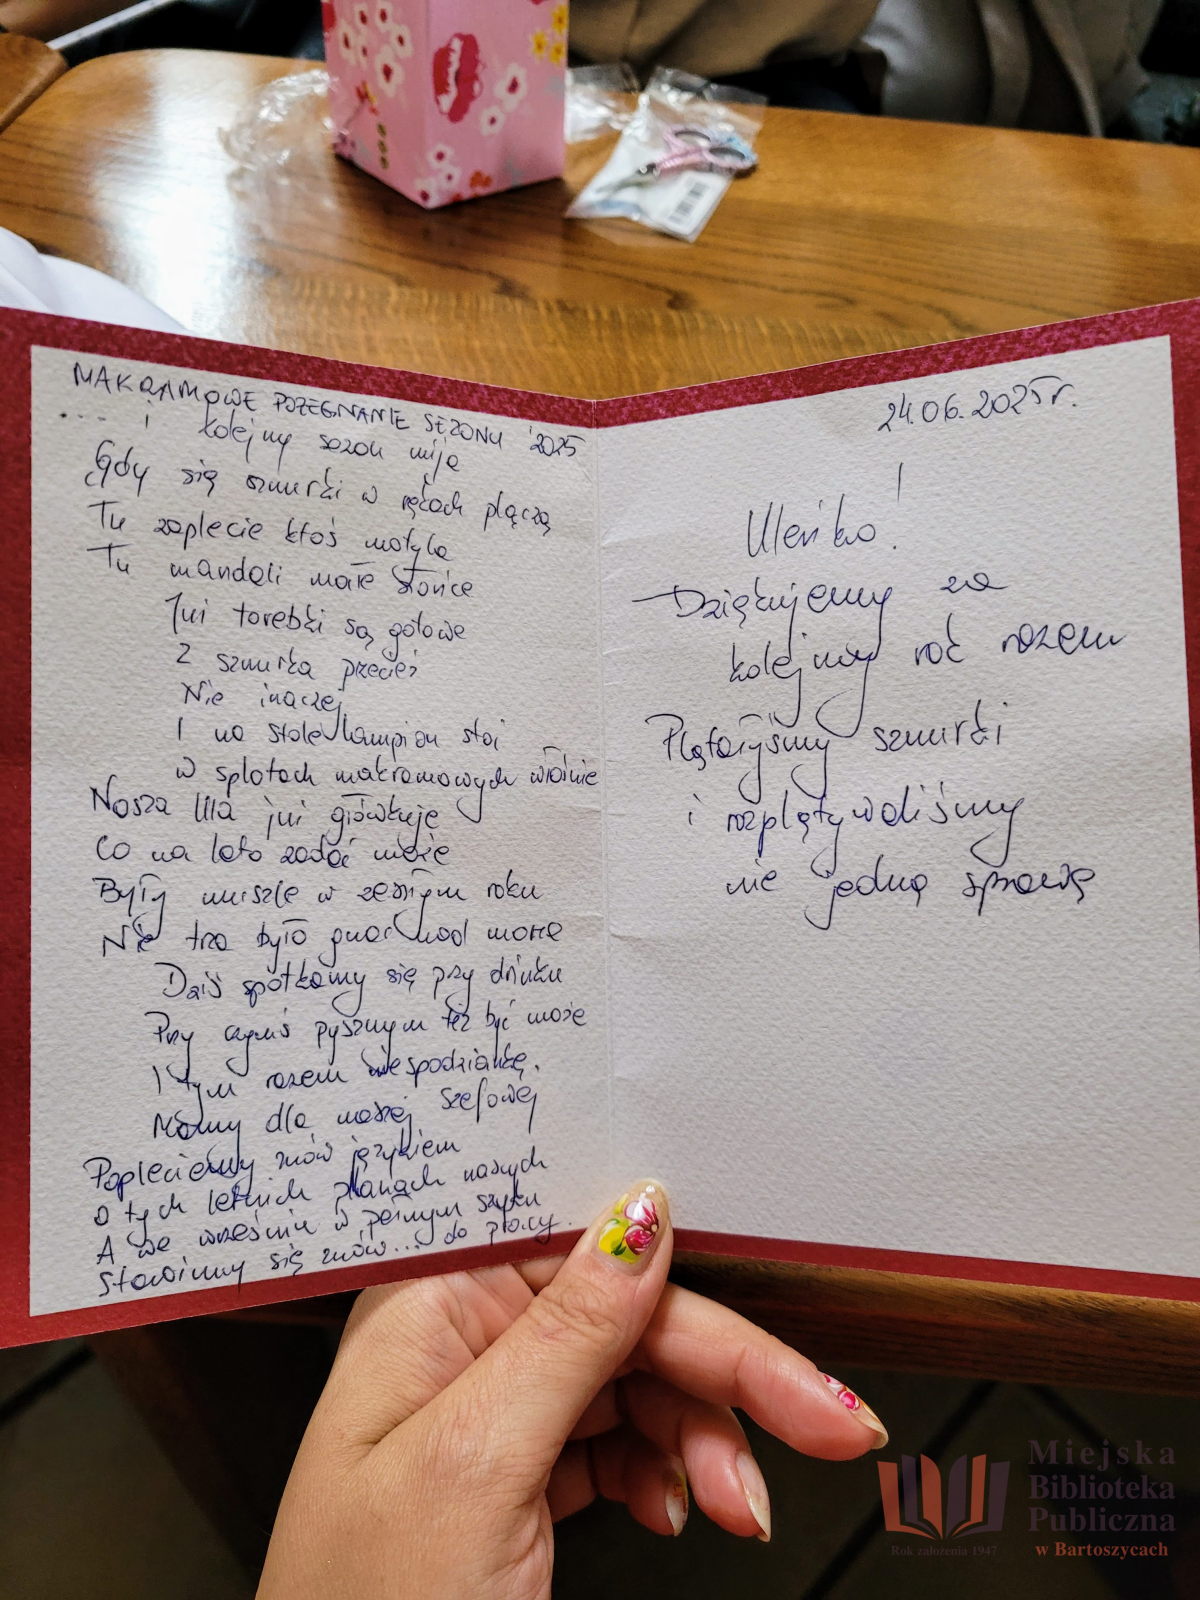 MAKRAMOWE POŻEGNANIE SEZONU '2025
.... i kolejny sezon mija
Gdy się sznurki w rękach plączą
Tu zaplecie ktoś motyla
Tu mandali małe słońce
Już torebki są gotowe
Z sznurka przecież
Nie inaczej
I na stole lampion stoi
W splotach makramowych właśnie
Nasza Ula już główkuje
Co na lato zadać może
Były muszle w zeszłym roku
Nie trza było gnać nad morze
Dziś spotkamy się przy drinku
Przy czymś pysznym też być może
I tym razem niespodziankę.
Mamy dla naszej szefowej
Popleciemy znów językiem
O tych letnich planach naszych
A we wrześniu w pełnym szyku
Stawimy się znów... do pracy.
24.06.2025r.
Uleńko!
Dziękujemy za
kolejny rok razem
Plątałyśmy sznurki
i rozplątywaliśmy
nie jedną sprawę
Miejska
Biblioteka
Publiczna
w Bartoszycach
Rok założenia 1947